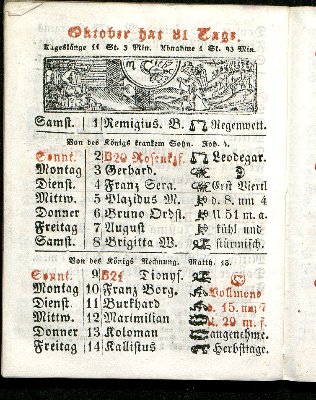 Oktober hat 31 Tage.
Tageslänge 11 St. 3 Min. Abnahme 1 St. 43 Min.
Samst. 1 Remigius. B. Regenwett.
Von des Königs krankem Sohn. Joh. 4.
Sonnt. 2 B20 Rosenkzf. Leodegar.
Montag 3 Gerhard.
Dienst. 4 Franz Sera. Erst Viertl
Mittw. 5 Plazidus M. d. 8. um 4
Donner 6 Bruno Ordst. U. 51 m. a.
Freitag 7 August kühl und
Samst. 8 Brigitta W. stürmisch.
Von des Königs Rechnung. Matth. 18.
Sonnt. 9 B21 Dionys.
Montag 10 Franz Borg. Vollmond
Dienst. 11 Burkhard d. 15. um 7
Mittw. 12 Maximilian U. 29 m. f.
Donner 13 Koloman angenehme.
Freitag 14 Kallistus Herbsttage.